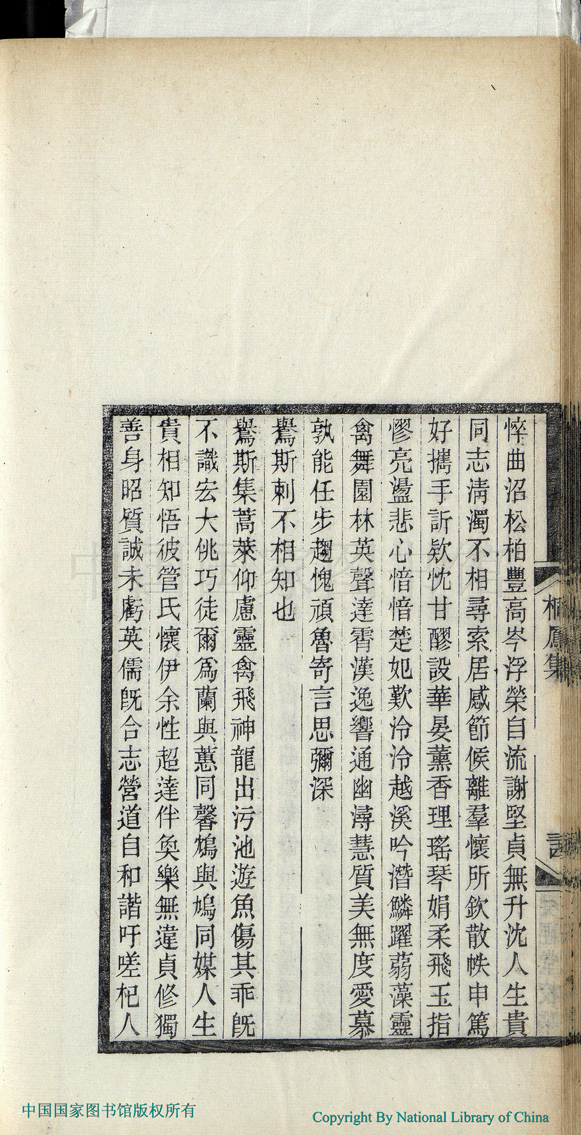 悴曲沼松柏豐高岑浮榮自流謝堅貞無升沈人生貴
同志清濁不相尋索居感節候離羣懷所欽散帙申篤
好攜手訢欵忱甘醪設華晏薰香理瑤琴娟柔飛玉指
憀亮盪悲心愔愔楚妃歎泠泠越溪吟潛鱗躍蒻藻靈
禽舞園林英聲達霄漢逸響通幽潯慧質美無度愛慕
孰能任步趨愧頑魯寄言思彌深
鸒斯刺不相知也
鸒斯集蒿萊仰慮靈禽飛神龍出污池遊魚傷其乖旣
不識宏大佻巧徒爾爲蘭與蕙同馨鴆與鳩同媒人生
貴相知悟彼管氏懷伊余性超達伴奐樂無違貞修獨
善身昭質誠未虧英儒旣合志營道自和諧吁嗟杞人
桐鳳集
中国国家图书馆版权所有
Copyright By National Library of China